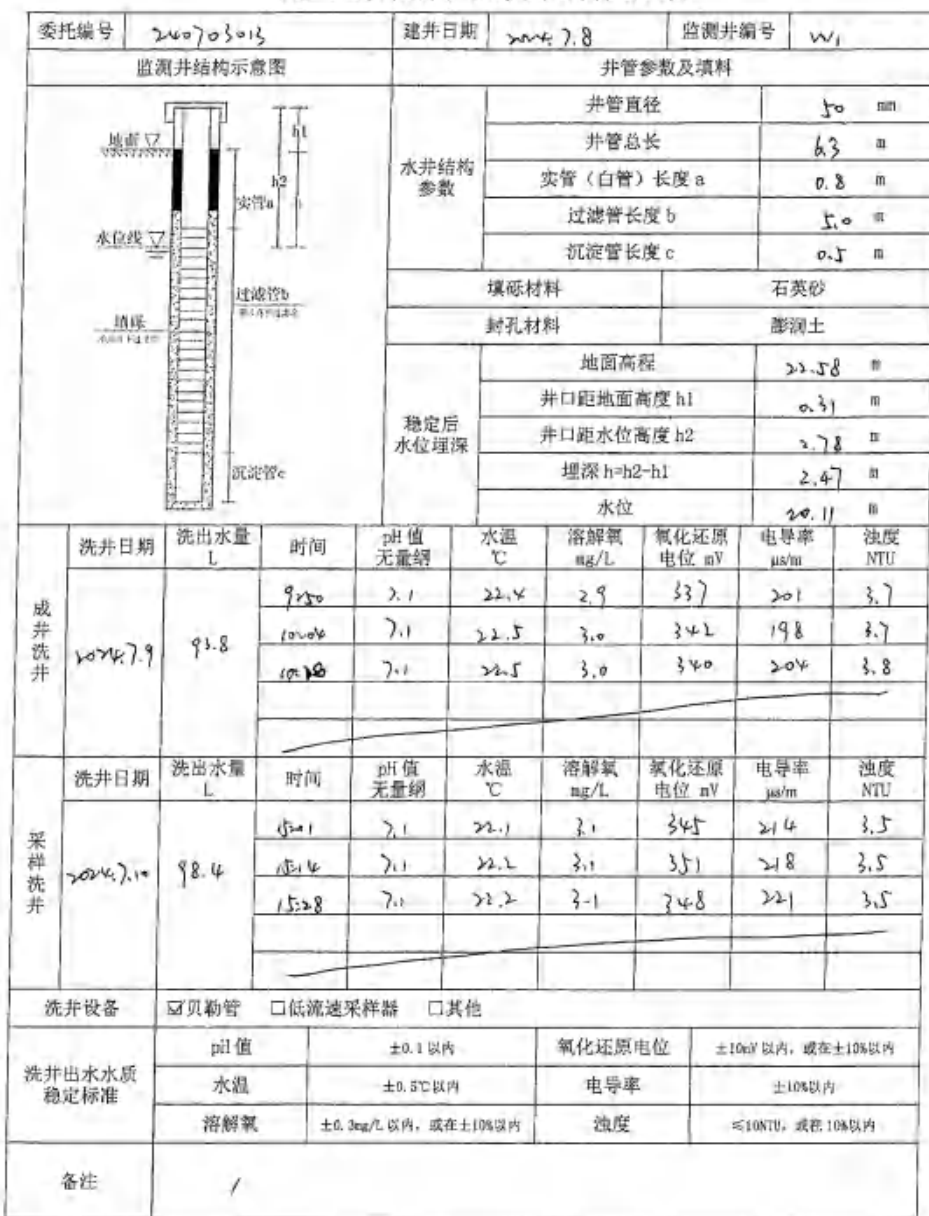 委托编号 240703013 建井日期 2024.7.8 监测井编号 W1
监测井结构示意图 井管参数及填料
地面
h1
h2
h
实管a
水位线
过滤管b
填砾
沉淀管c
水井结构参数
井管直径 50 mm
井管总长 6.3 m
实管（白管）长度 a 0.8 m
过滤管长度 b 5.0 m
沉淀管长度 c 0.5 m
填砾材料 石英砂
封孔材料 膨润土
稳定后水位埋深
地面高程 22.58 m
井口距地面高度 h1 0.31 m
井口距水位高度 h2 2.78 m
埋深 h=h2-h1 2.47 m
水位 20.11 m
成井洗井
洗井日期 洗出水量 L 时间 pH 值 无量纲 水温 ℃ 溶解氧 mg/L 氧化还原电位 mV 电导率 μs/m 浊度 NTU
2024.7.9 93.8
9:50 7.1 22.4 2.9 337 201 3.7
10:04 7.1 22.5 3.0 342 198 3.7
10:18 7.1 22.5 3.0 340 204 3.8
采样洗井
洗井日期 洗出水量 L 时间 pH 值 无量纲 水温 ℃ 溶解氧 mg/L 氧化还原电位 mV 电导率 μs/m 浊度 NTU
2024.7.10 98.4
15:01 7.1 22.1 3.1 345 214 3.5
15:14 7.1 22.2 3.1 351 218 3.5
15:28 7.1 22.2 3.1 348 221 3.5
洗井设备 ☑贝勒管 □低流速采样器 □其他
洗井出水水质稳定标准
pH 值 ±0.1 以内 氧化还原电位 ±10mV 以内，或在±10%以内
水温 ±0.5℃以内 电导率 ±10%以内
溶解氧 ±0.3mg/L 以内，或在±10%以内 浊度 ≤10NTU，或在 10%以内
备注 /